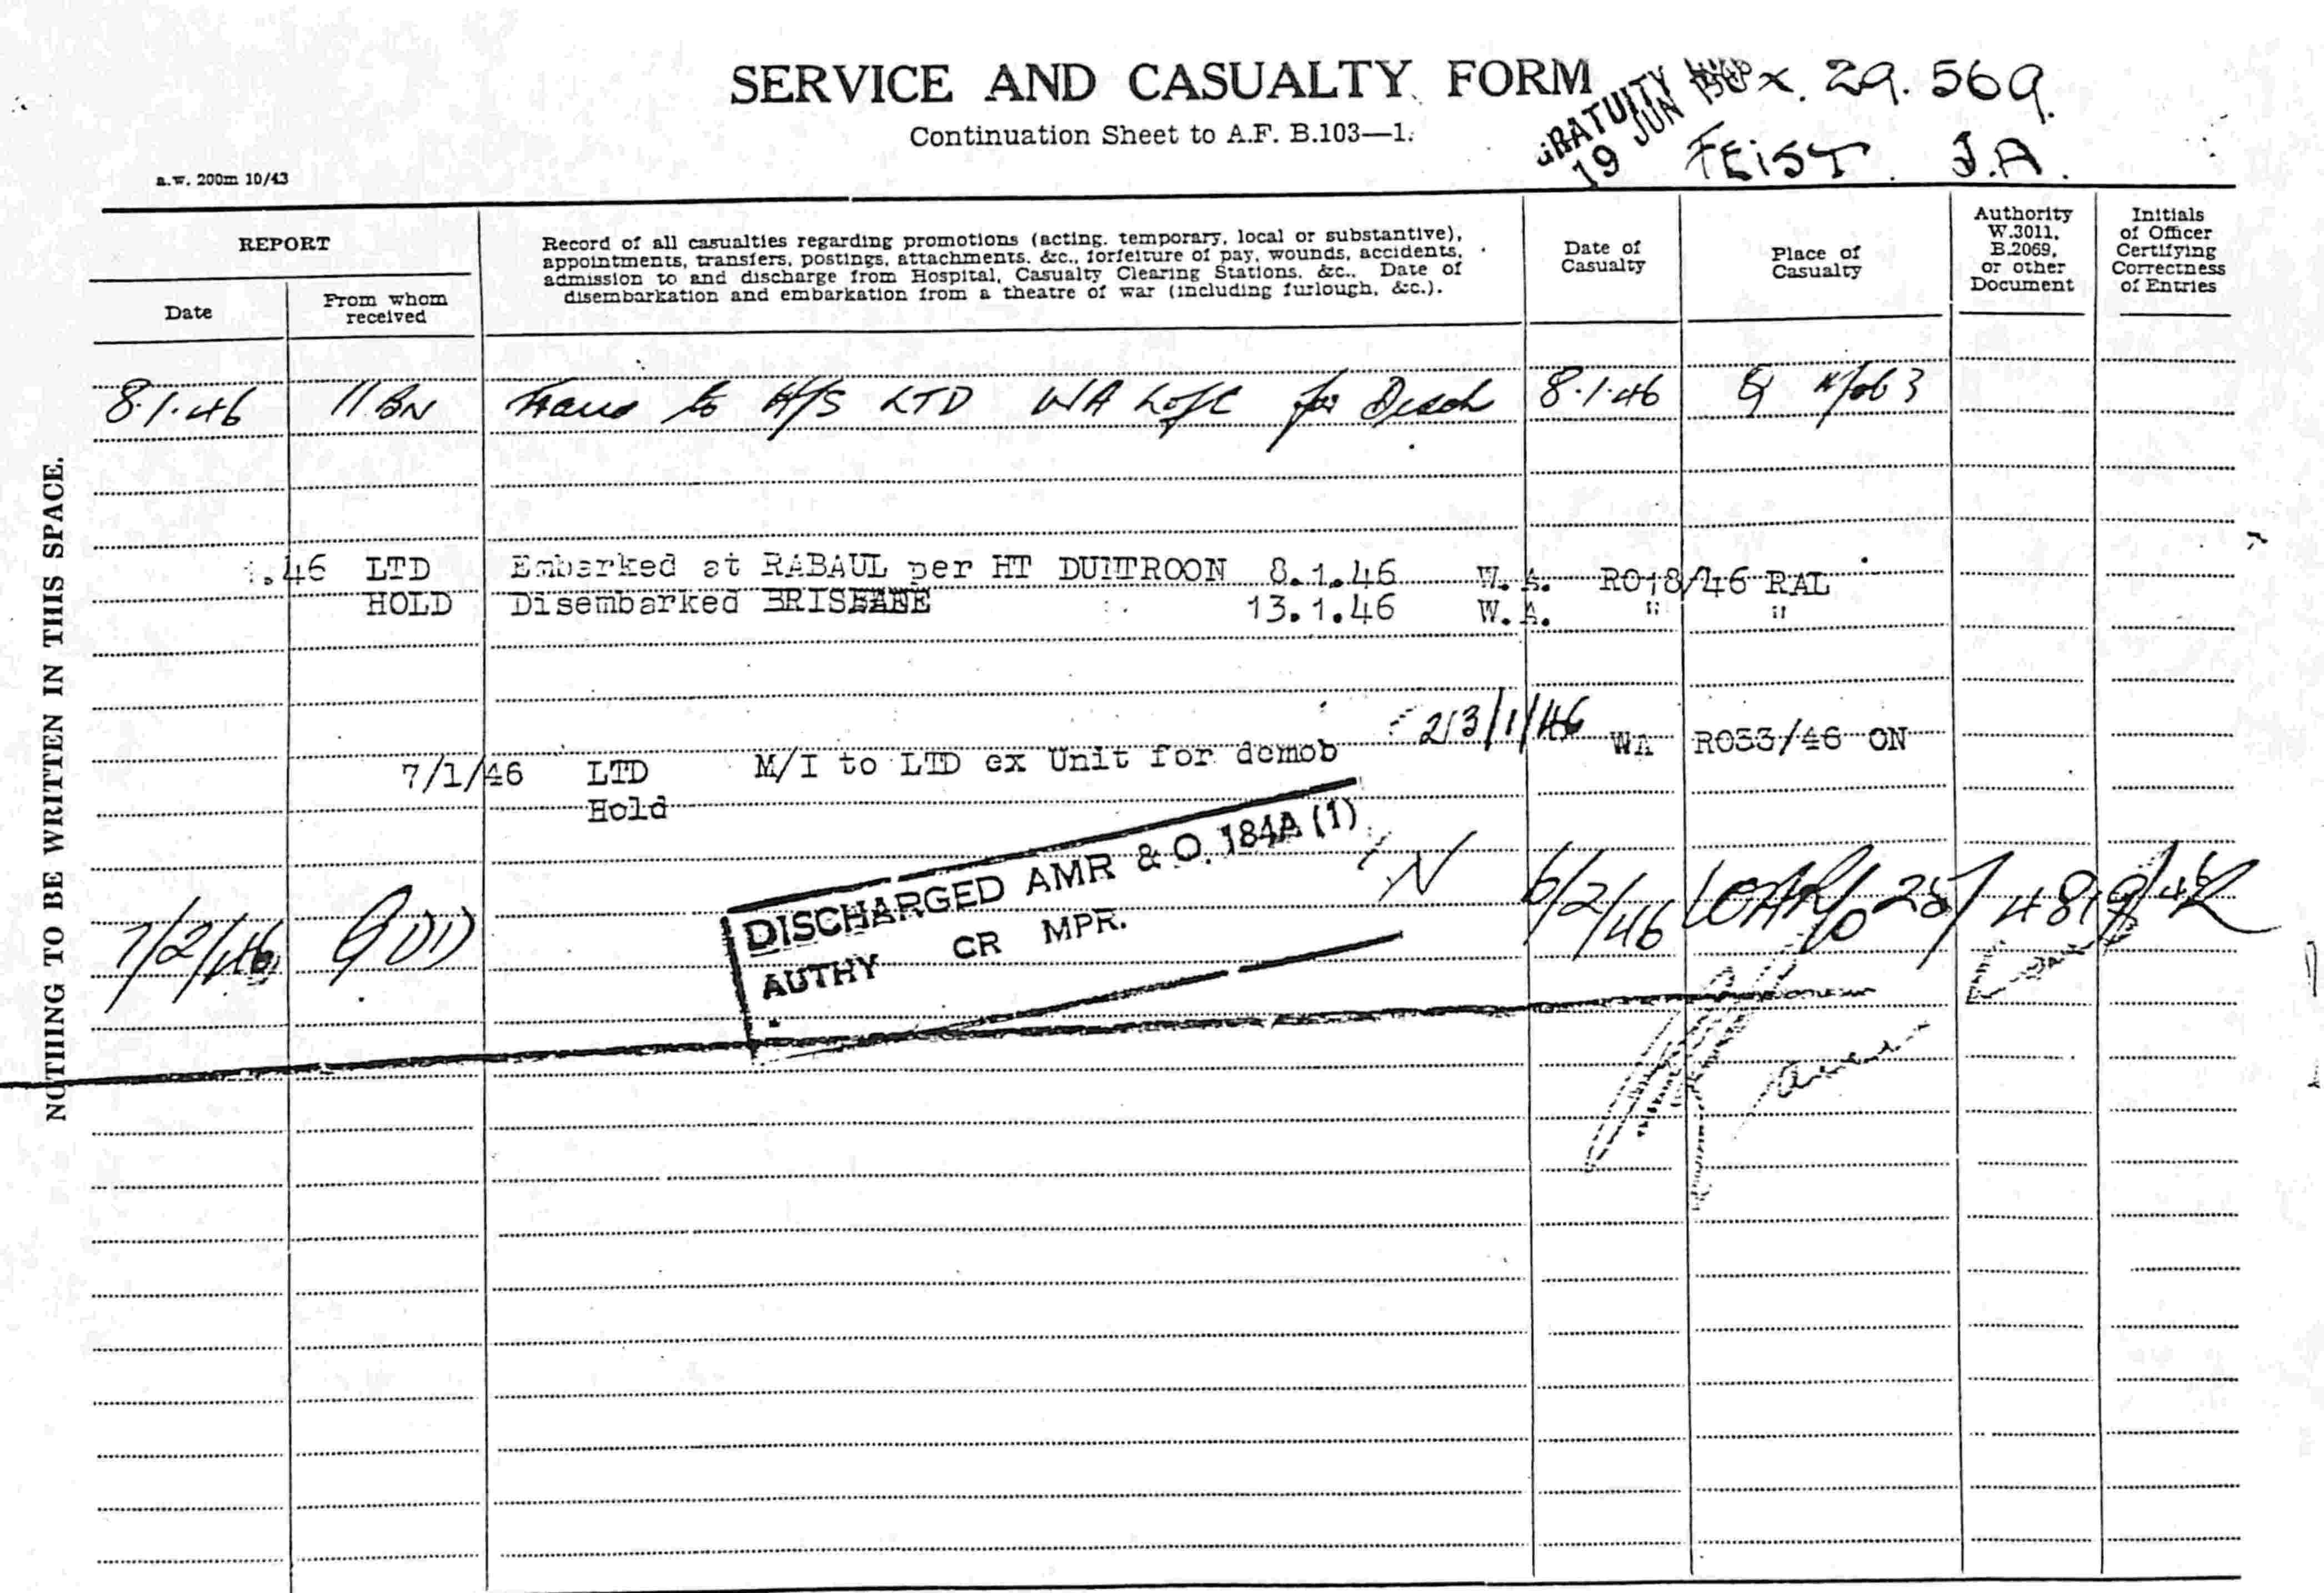 SERVICE AND CASUALTY FORM
Continuation Sheet to A.F. B.103—1.
GRATUITY
19 JUN
X. 29.569.
FEIST. J.A.
a.w. 200m 10/43
REPORT
Date
From whom received
Record of all casualties regarding promotions (acting, temporary, local or substantive),
appointments, transfers, postings, attachments, &c., forfeiture of pay, wounds, accidents,
admission to and discharge from Hospital, Casualty Clearing Stations, &c.. Date of
disembarkation and embarkation from a theatre of war (including furlough, &c.).
Date of Casualty
Place of Casualty
Authority W.3011, B.2069, or other Document
Initials of Officer Certifying Correctness of Entries
8.1.46 11 BN Trans to H/S LTD WA LofC for Disch 8.1.46
.46 LTD Embarked at RABAUL per HT DUNTROON 8.1.46 W.A. RO18/46 RAL
HOLD Disembarked BRISBANE 13.1.46 W.A. " "
23/1/46
7/1/46 LTD M/I to LTD ex Unit for demob WA RO33/46 ON
Hold
DISCHARGED AMR & O. 184A (1)
AUTHY CR MPR.
7/2/46 GDD 6/2/46
NOTHING TO BE WRITTEN IN THIS SPACE.